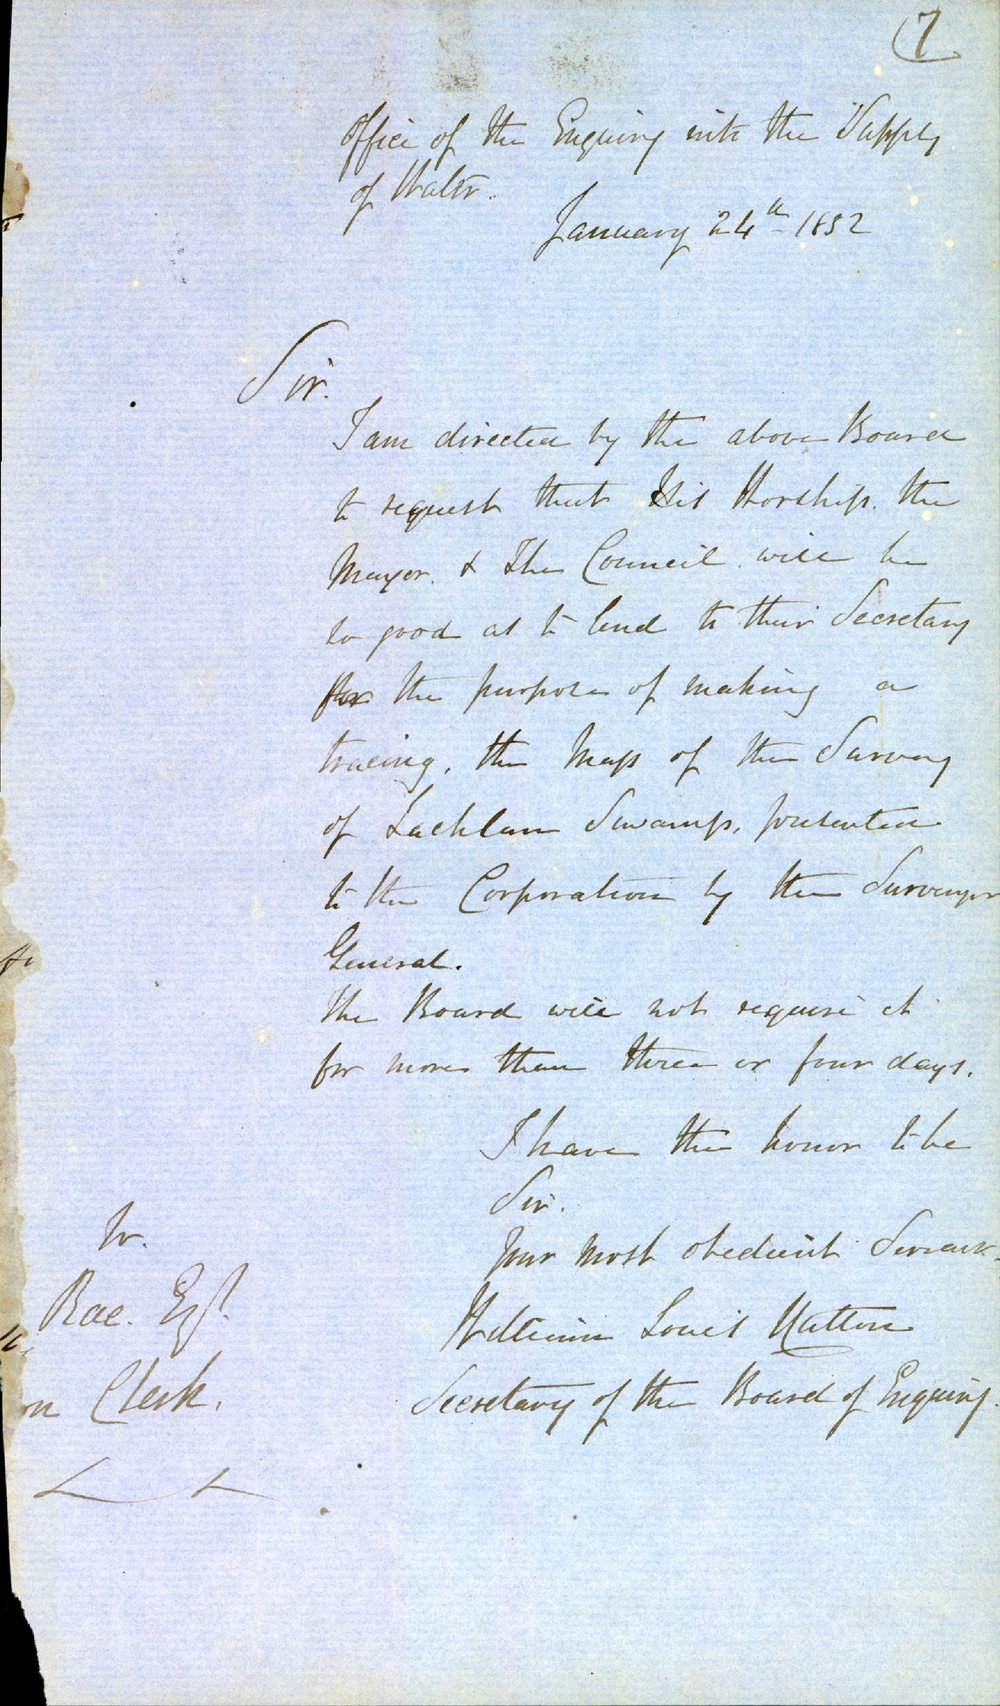 7
Office of the Enquiry into the Supply
of Water.
January 24th 1852
Sir.
I am directed by the above Board
to request that His Worship. the
Mayor. & The Council. will be
so good as to lend to their Secretary
for the purpose of making a
tracing, the Map of the Survey
of Lachlan Swamp, presented
to the Corporation by the Surveyor
General.
The Board will not require it
for more than three or four days.
I have the honor to be
Sir.
Your most obedient Servant
William Louis Hutton
Secretary of the Board of Enquiry.
Rae. Esq.
n Clerk.